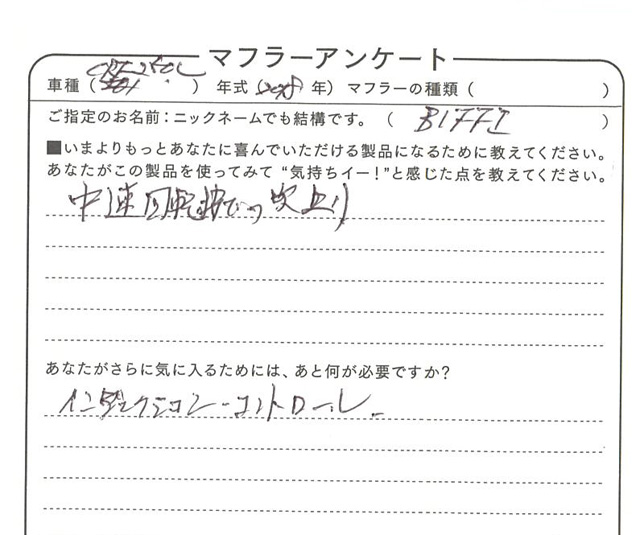 マフラーアンケート
車種（ ） 年式（2008年）マフラーの種類（ ）
ご指定のお名前：ニックネームでも結構です。（ BIFFI ）
■いまよりもっとあなたに喜んでいただける製品になるために教えてください。
あなたがこの製品を使ってみて“気持ちイー！”と感じた点を教えてください。
中速回転時での吹上り
あなたがさらに気に入るためには、あと何が必要ですか？
インジェクション－コントロール